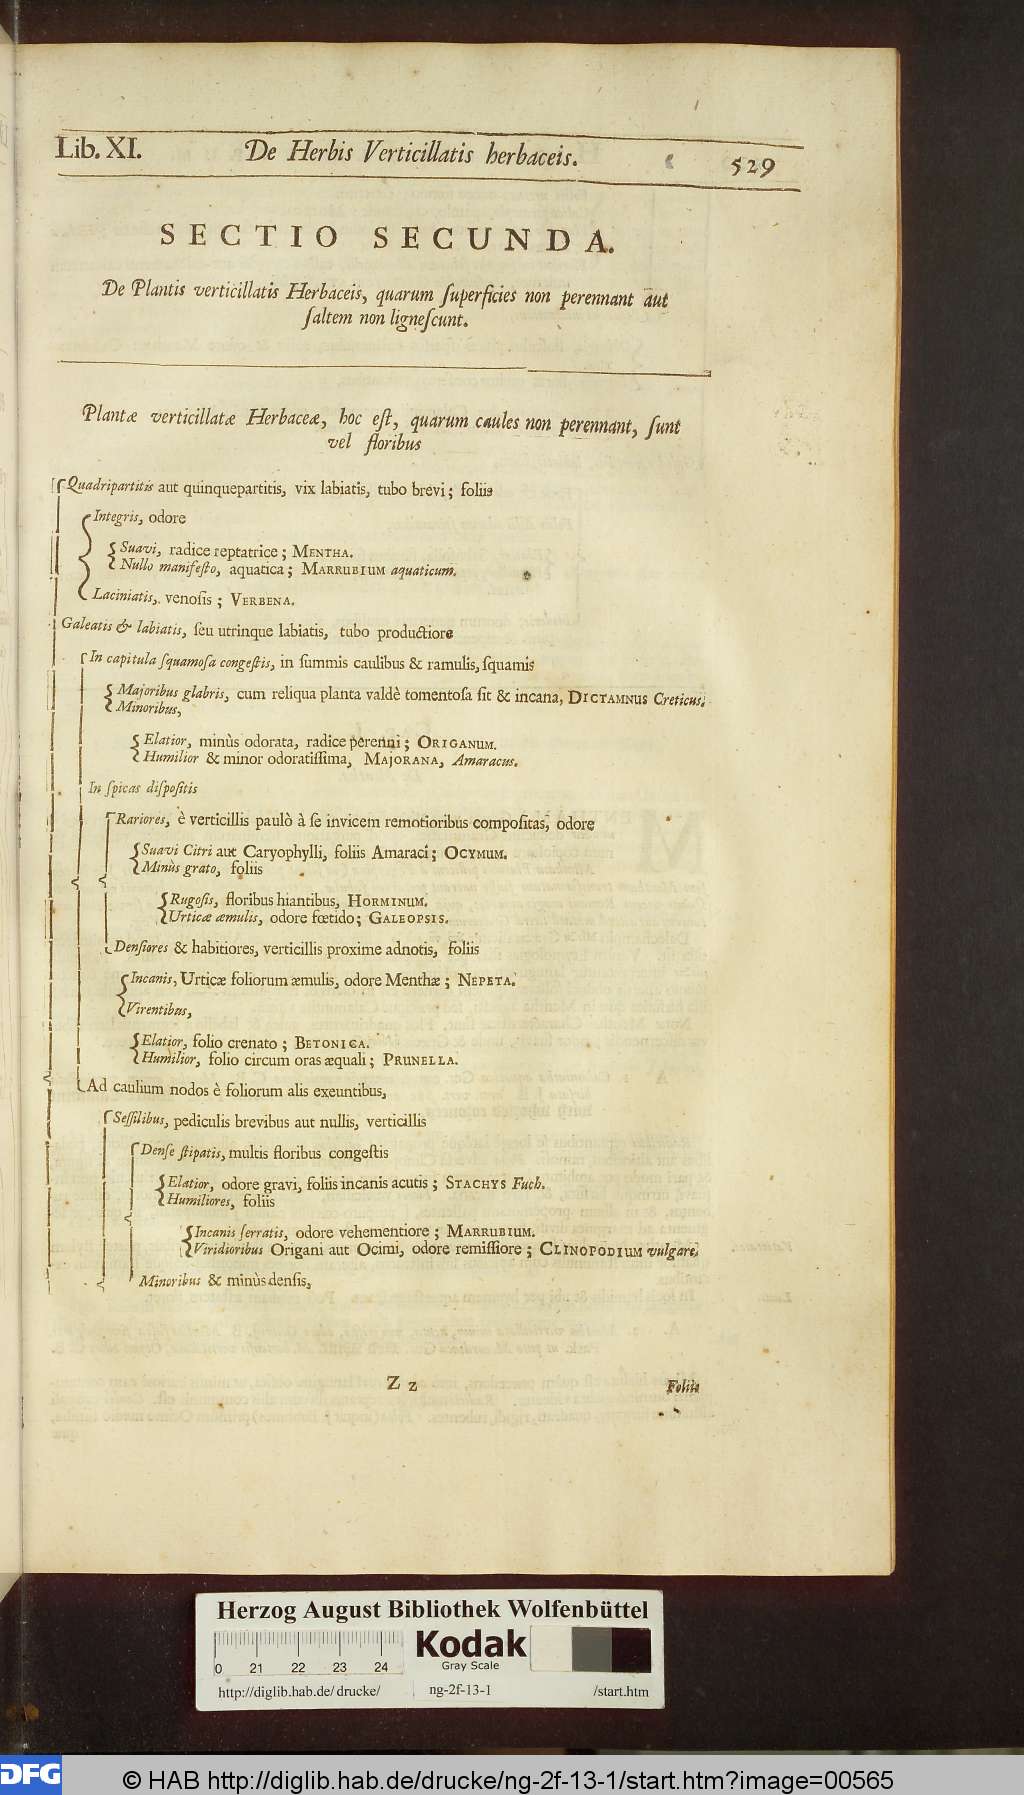 Lib. XI. De Herbis Verticillatis herbaceis. 529
SECTIO SECUNDA.
De Plantis verticillatis Herbaceis, quarum ſuperficies non perennant aut
ſaltem non ligneſcunt.
Plantæ verticillatæ Herbaceæ, hoc eſt, quarum caules non perennant, ſunt
vel floribus
Quadripartitis aut quinquepartitis, vix labiatis, tubo brevi; foliis
Integris, odore
Suavi, radice reptatrice; MENTHA.
Nullo manifeſto, aquatica; MARRUBIUM aquaticum.
Laciniatis, venoſis; VERBENA.
Galeatis & labiatis, ſeu utrinque labiatis, tubo productiore
In capitula ſquamoſa congeſtis, in ſummis caulibus & ramulis, ſquamis
Majoribus glabris, cum reliqua planta valdè tomentoſa ſit & incana, DICTAMNUS Creticus.
Minoribus,
Elatior, minùs odorata, radice perenni; ORIGANUM.
Humilior & minor odoratiſſima, MAJORANA, Amaracus.
In ſpicas diſpoſitis
Rariores, è verticillis paulò à ſe invicem remotioribus compoſitas, odore
Suavi Citri aut Caryophylli, foliis Amaraci; OCYMUM.
Minùs grato, foliis
Rugoſis, floribus hiantibus, HORMINUM.
Urticæ æmulis, odore fœtido; GALEOPSIS.
Denſiores & habitiores, verticillis proxime adnotis, foliis
Incanis, Urticæ foliorum æmulis, odore Menthæ; NEPETA.
Virentibus,
Elatior, folio crenato; BETONICA.
Humilior, folio circum oras æquali; PRUNELLA.
Ad caulium nodos è foliorum alis exeuntibus,
Seſſilibus, pediculis brevibus aut nullis, verticillis
Denſe ſtipatis, multis floribus congeſtis
Elatior, odore gravi, foliis incanis acutis; STACHYS Fuch.
Humiliores, foliis
Incanis ſerratis, odore vehementiore; MARRUBIUM.
Viridioribus Origani aut Ocimi, odore remiſſiore; CLINOPODIUM vulgare.
Minoribus & minùs denſis,
Z z Foliis
Herzog August Bibliothek Wolfenbüttel
Kodak
Gray Scale
0 21 22 23 24
http://diglib.hab.de/drucke/ ng-2f-13-1 /start.htm
DFG © HAB http://diglib.hab.de/drucke/ng-2f-13-1/start.htm?image=00565